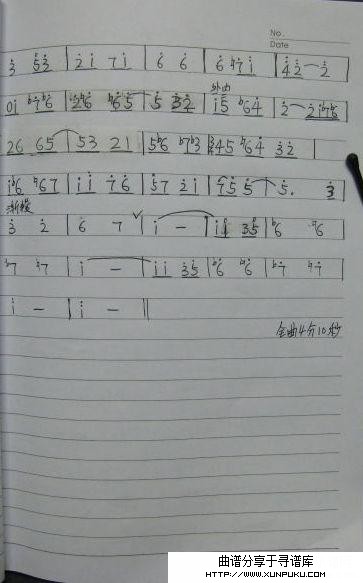 No.
Date
3 53 | 2i 7i | 6 6 | 6 b7i | 42 2
0i b7b6 | 2b6 b65 | 5 32 | i5 b64 | 2 2ib7b6
26 65 | 53 21 | 5b6 b7b3 | 245 b64 32 |
ib6 b67 | ii 76 | 57 2i | 755 5. 3
渐慢
3 2 | 6 7 ✓ | i — | ii 35 | b6 6
b7 7 | i — | ii 35 | b6 b6 | b7 7
i — | i — ||
全曲4分10秒
曲谱分享于寻谱库
HTTP://WWW.XUNPUKU.COM